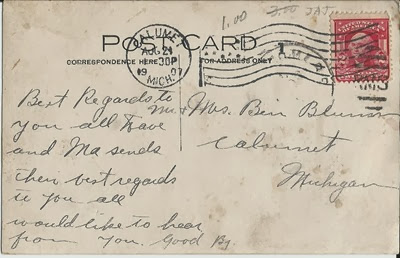 1.00 3.00
POST CARD
CORRESPONDENCE HERE
FOR ADDRESS ONLY
CALUMET
AUG 21
30PM
1907
MICH.
1
Best Regards to
you all Dave
and Ma sends
their best regards
to you all
would like to hear
from you. Good By
Mr & Mrs. Ben Blum
Calumet
Michigan